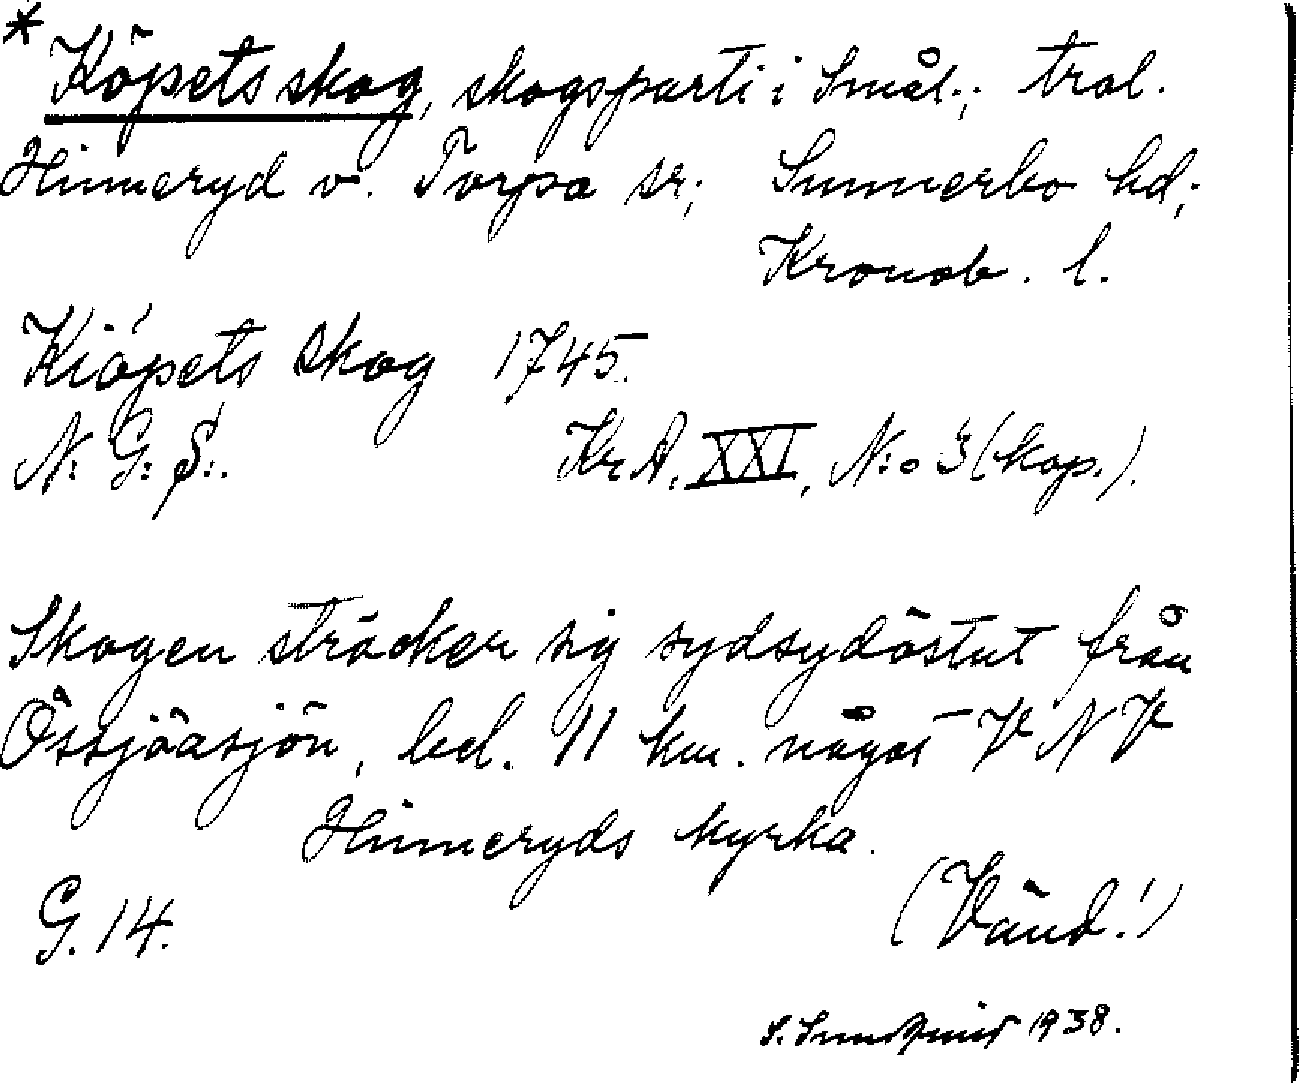 * Köpets skog, skogsparti i Smål.; trol.
Hinneryd v. Torpa sn; Sunnerbo hd;
Kronob. l.
Kiöpets skog 1745.
N: G: S:.
KrA. XXI, N:o 3 (kop.).
Skogen sträcker sig sydsydöstut från
Össjöasjön, bel. 11 km. något VNV
Hinneryds kyrka.
G. 14.
(Vänd!)
S. Sundquist 1938.